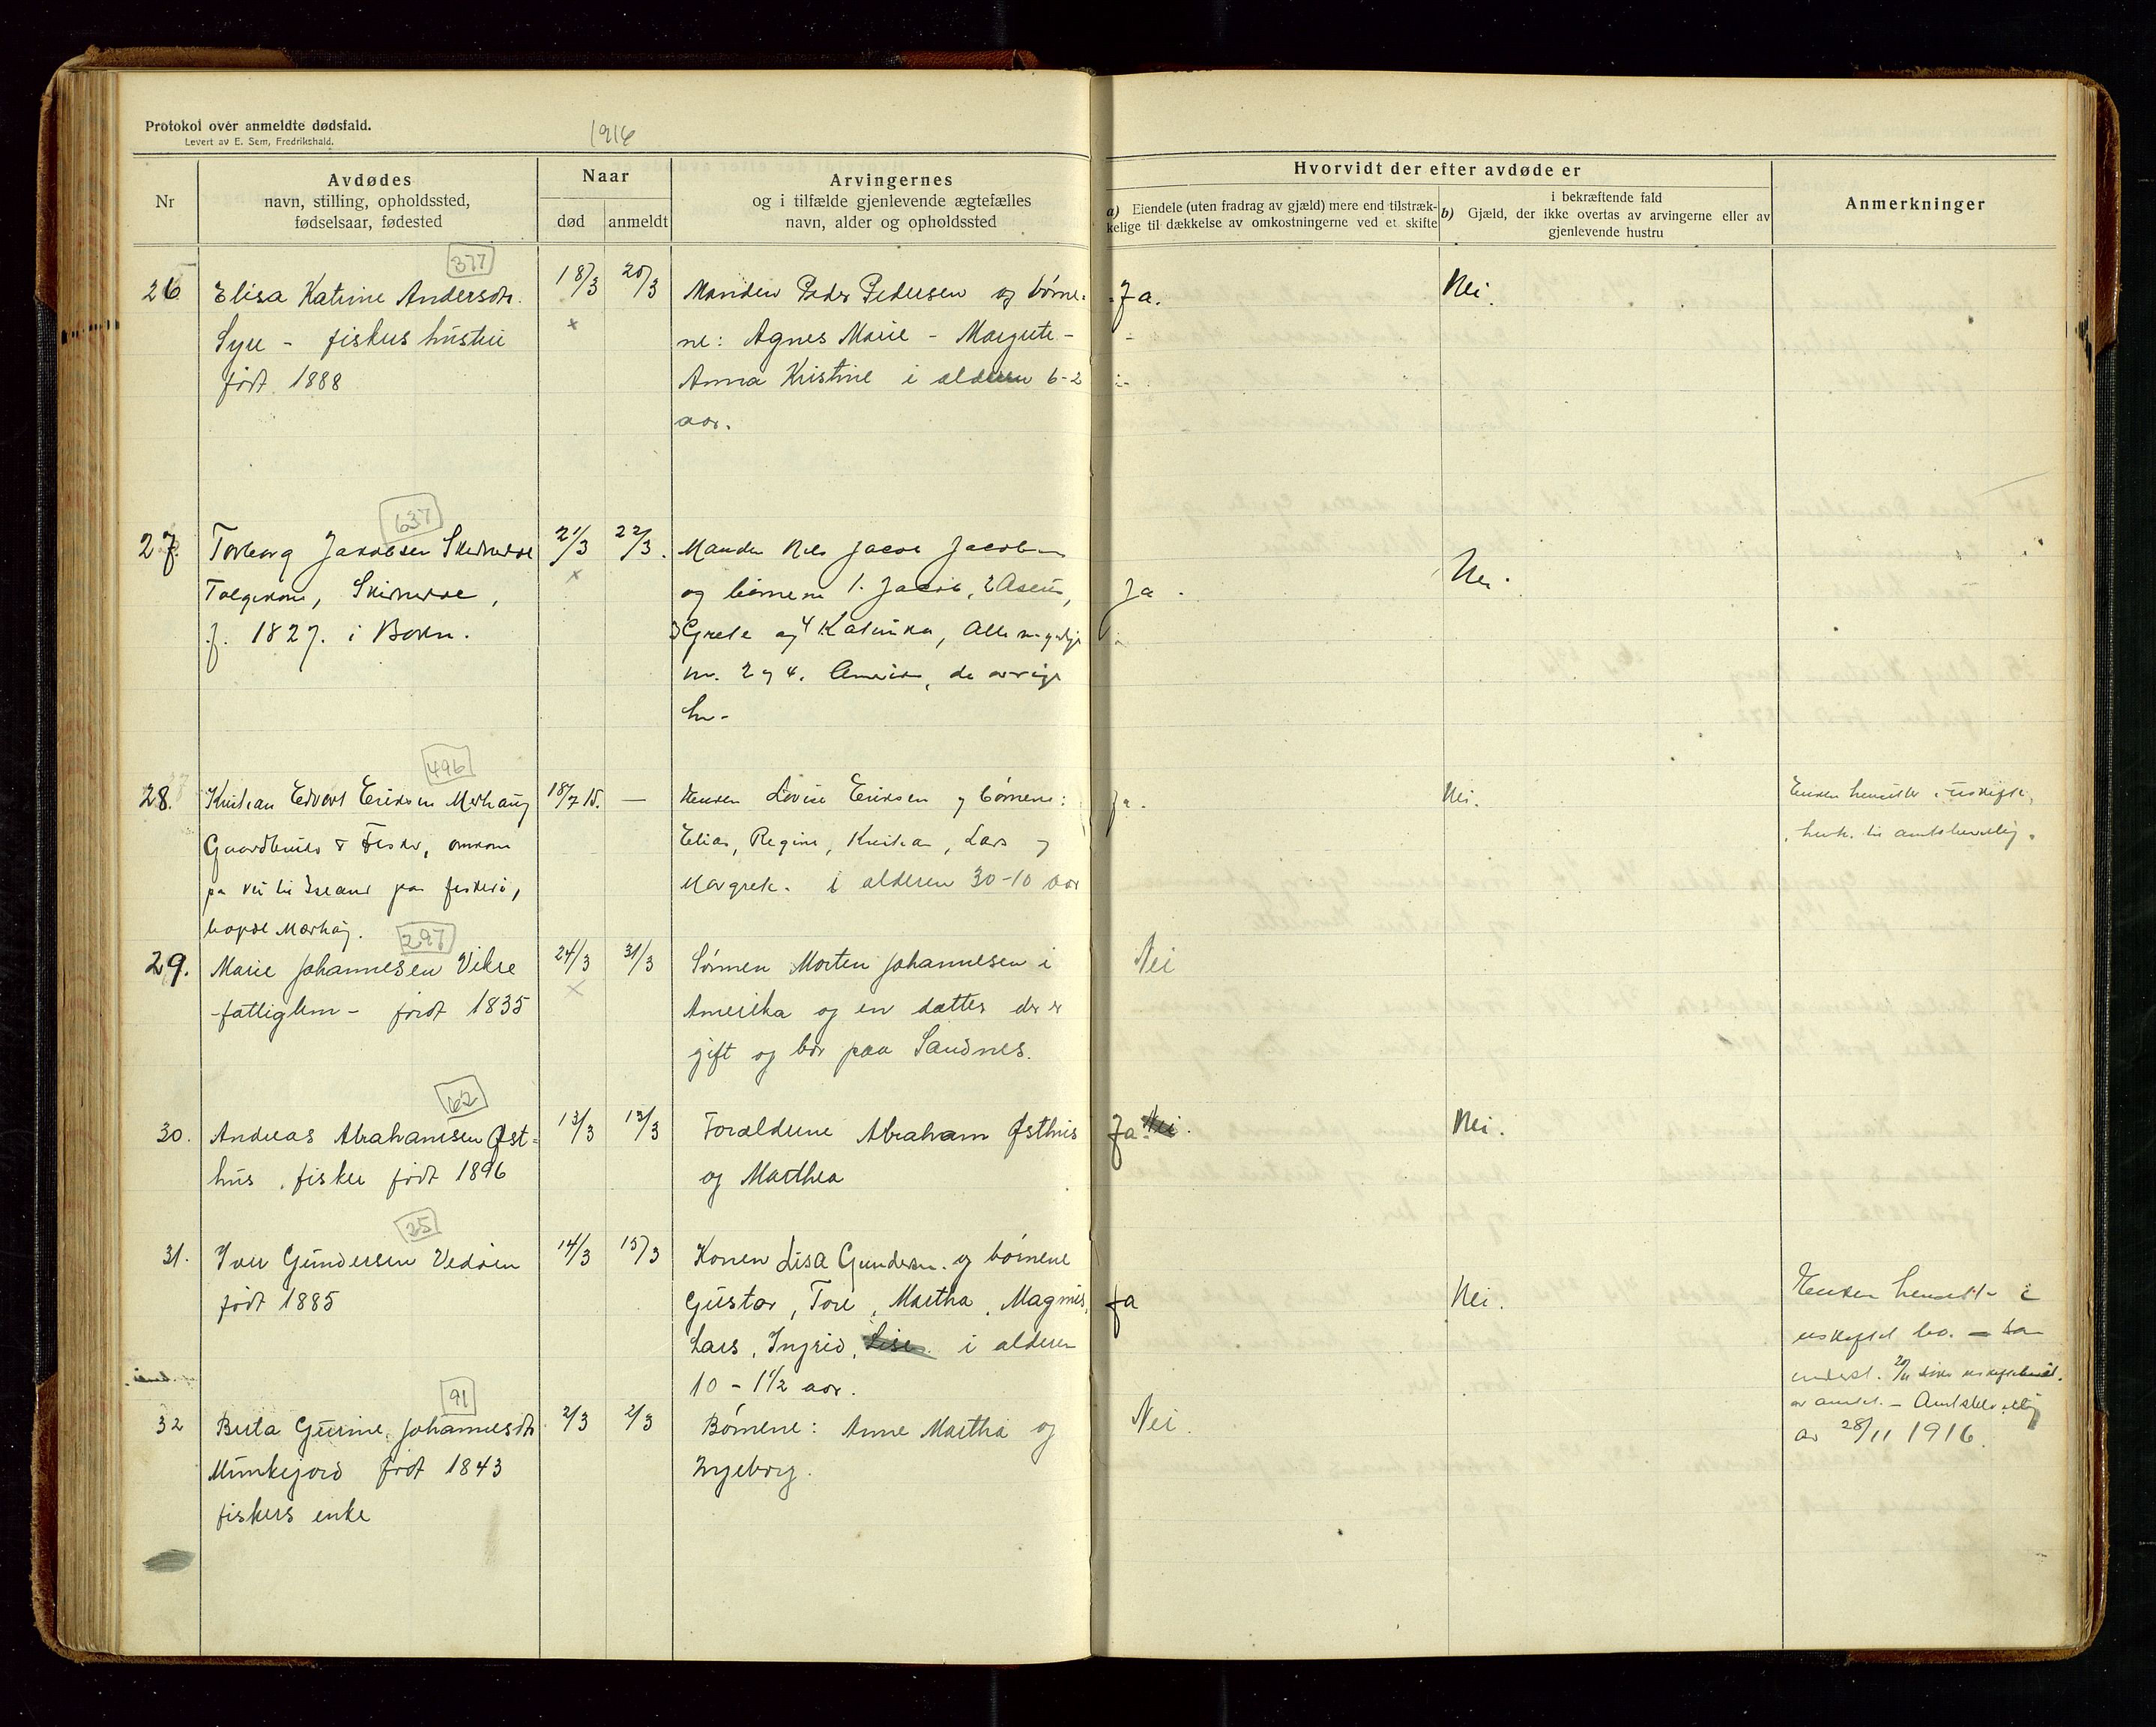 Protokol over anmeldte dødsfald.
Levert av E. Sem, Fredrikshald.
1916
Nr
Avdødes
navn, stilling, opholdssted,
fødselsaar, fødested
Naar
død
anmeldt
Arvingernes
og i tilfælde gjenlevende ægtefælles
navn, alder og opholdssted
Hvorvidt der efter avdøde er
a) Eiendele (uten fradrag av gjæld) mere end tilstræk-
kelige til dækkelse av omkostningerne ved et skifte
b) i bekræftende fald
Gjæld, der ikke overtas av arvingerne eller av
gjenlevende hustru
Anmerkninger
377
26 Elisa Katrine Andersdtr. 18/3 20/3 Manden Peder Pedersen og børne- Ja. Nei.
Syre - fiskers hustru x ne: Agnes Marie - Margrete -
født 1888 Anna Kristine i alderen 6-2
aar.
637
27. Torborg Jakobsen Skeiseid 21/3 22/3. Manden Nils Jacob Jacobsen
, x og børnene 1. Jacob, 2 Ja. Nei.
f. 1827. i Bokn. 3 Grete og 4 Katinka, Alle myndige
nr. 2 og 4. Amerika, de øvrige
her-
496
28. Kristian Edvart Eriksen Mærhaug 18/7 15. — Enken Lovise Eriksen og børnene: Ja. Nei. Enken hensitter i uskifte,
Gaardbruker & Fisker, omkom Elias, Regine, Kristian, Lars og
pa vei til Island paa fiskeri, Margrete. i alderen 30-10 aar
bopæl Mærhaug.
297
29. Marie Johannesen Vikse 24/3 31/3 Sønnen Morten Johannesen i Nei
-fattiglem- født 1835 x Amerika og en datter der er
gift og bor paa Sandnes.
62
30. Andreas Abrahamsen Øst- 13/3 13/3 Forældrene Abraham Østhus Ja. Nei. Nei.
hus, fisker født 1896 og Marthea
25
31. Iver Gundersen Vedøen 14/3 15/3 Konen Lisa Gundersen. og børnene
født 1885 Gustav, Tore, Martha, Magnus, Ja Nei. Enken hensitter i
Lars, Ingrid, Lise. i alderen uskiftet bo.
10 - 1 1/2 aar.
91
32 Berta Gurine Johannesdtr 2/3 2/3 Børnene: Anne Martha og Nei. av amtet. - Amtsbevilling
Munkejord født 1843 Ingeborg. av 28/11 1916.
fiskers enke